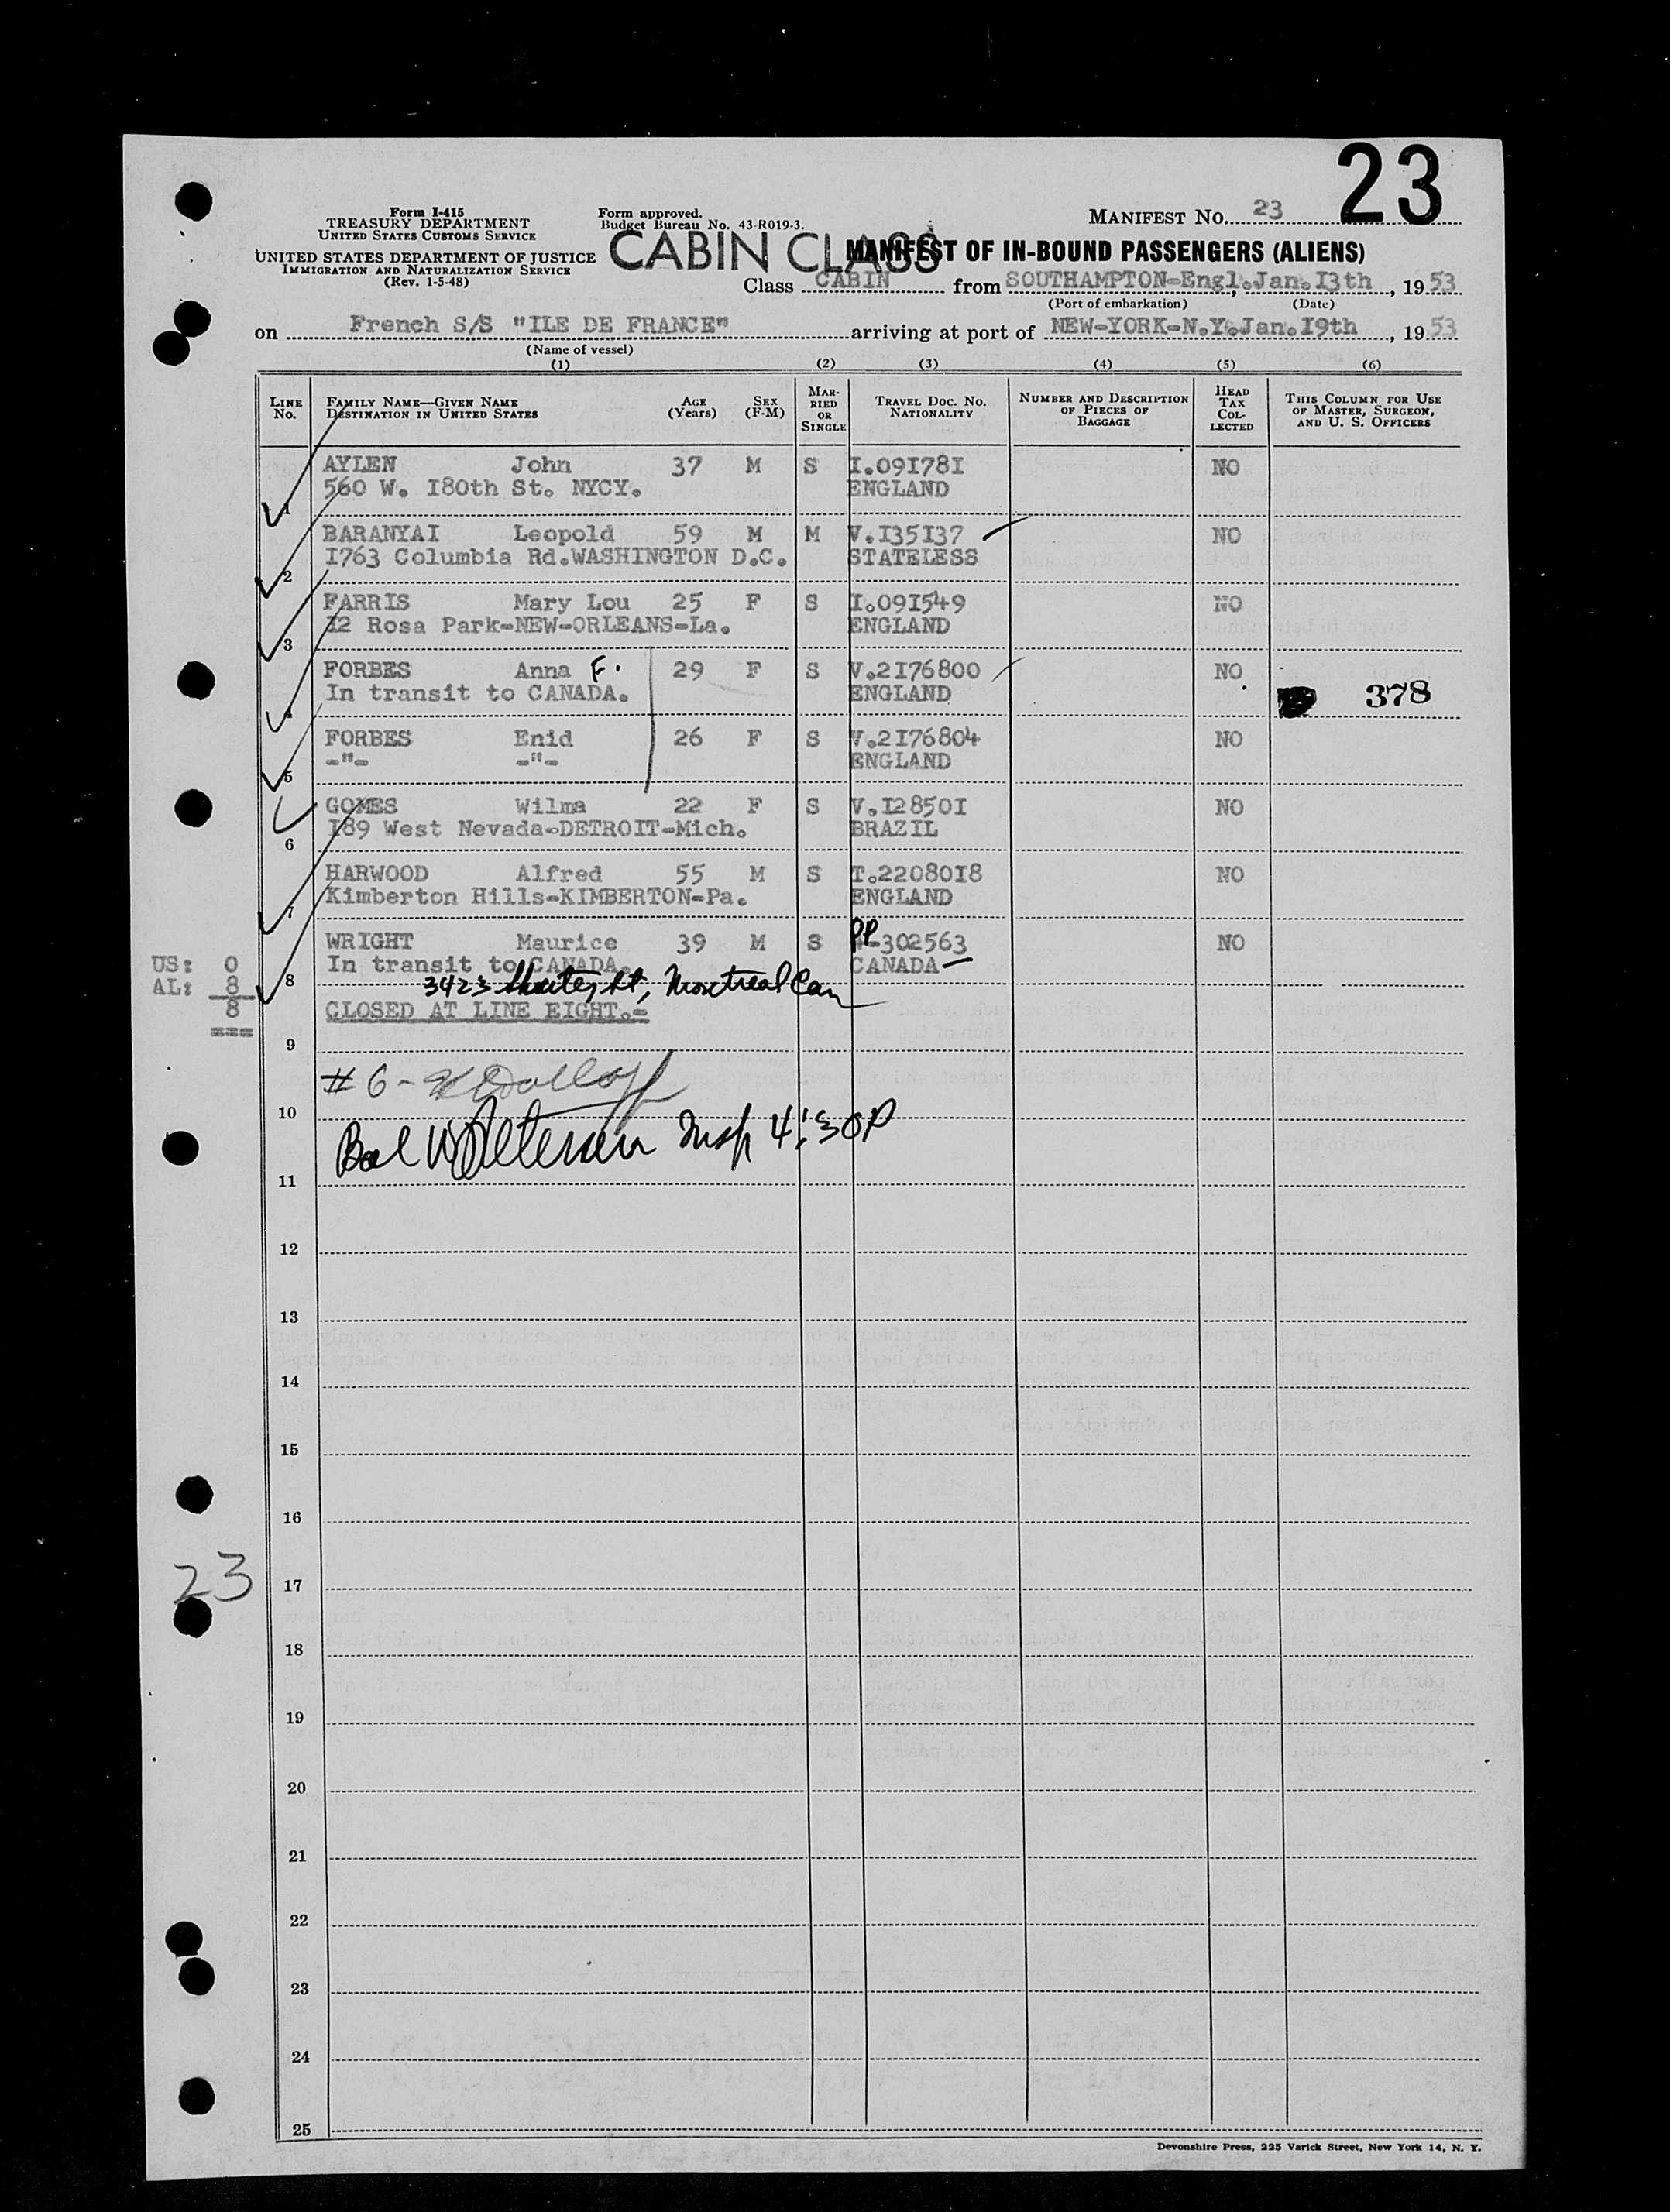 23
Form I-415
TREASURY DEPARTMENT
UNITED STATES CUSTOMS SERVICE
UNITED STATES DEPARTMENT OF JUSTICE
IMMIGRATION AND NATURALIZATION SERVICE
(Rev. 1-5-48)
Form approved.
Budget Bureau No. 43-R019-3.
MANIFEST No. 23
CABIN CLASS
MANIFEST OF IN-BOUND PASSENGERS (ALIENS)
Class CABIN from SOUTHAMPTON-Engl., Jan. I3th, 1953
(Port of embarkation) (Date)
on French S/S "ILE DE FRANCE" arriving at port of NEW-YORK-N.Y. Jan. I9th, 1953
(Name of vessel)
(1) (2) (3) (4) (5) (6)
LINE No. FAMILY NAME—GIVEN NAME DESTINATION IN UNITED STATES AGE (Years) SEX (F-M) MARRIED OR SINGLE TRAVEL DOC. NO. NATIONALITY NUMBER AND DESCRIPTION OF PIECES OF BAGGAGE HEAD TAX COLLECTED THIS COLUMN FOR USE OF MASTER, SURGEON, AND U. S. OFFICERS
AYLEN John 37 M S I.09I78I NO
560 W. I80th St. NYCY. ENGLAND
1
BARANYAI Leopold 59 M M V.I35I37 NO
I763 Columbia Rd.WASHINGTON D.C. STATELESS
2
FARRIS Mary Lou 25 F S I.09I549 NO
I2 Rosa Park-NEW-ORLEANS-La. ENGLAND
3
FORBES Anna F. 29 F S V.2I76800 NO
In transit to CANADA. ENGLAND 378
4
FORBES Enid 26 F S V.2I76804 NO
-"- -"- ENGLAND
5
GOMES Wilma 22 F S V.I2850I NO
I89 West Nevada-DETROIT-Mich. BRAZIL
6
HARWOOD Alfred 55 M S I.22080I8 NO
Kimberton Hills-KIMBERTON-Pa. ENGLAND
7
WRIGHT Maurice 39 M S PP-302563 NO
In transit to CANADA. CANADA
8
3423 St, Montreal Can
US: 0
AL: 8
8
===
CLOSED AT LINE EIGHT.-
9
#6-
10
Insp 4:30P
11
12
13
14
15
16
23
17
18
19
20
21
22
23
24
25
Devonshire Press, 225 Varick Street, New York 14, N. Y.